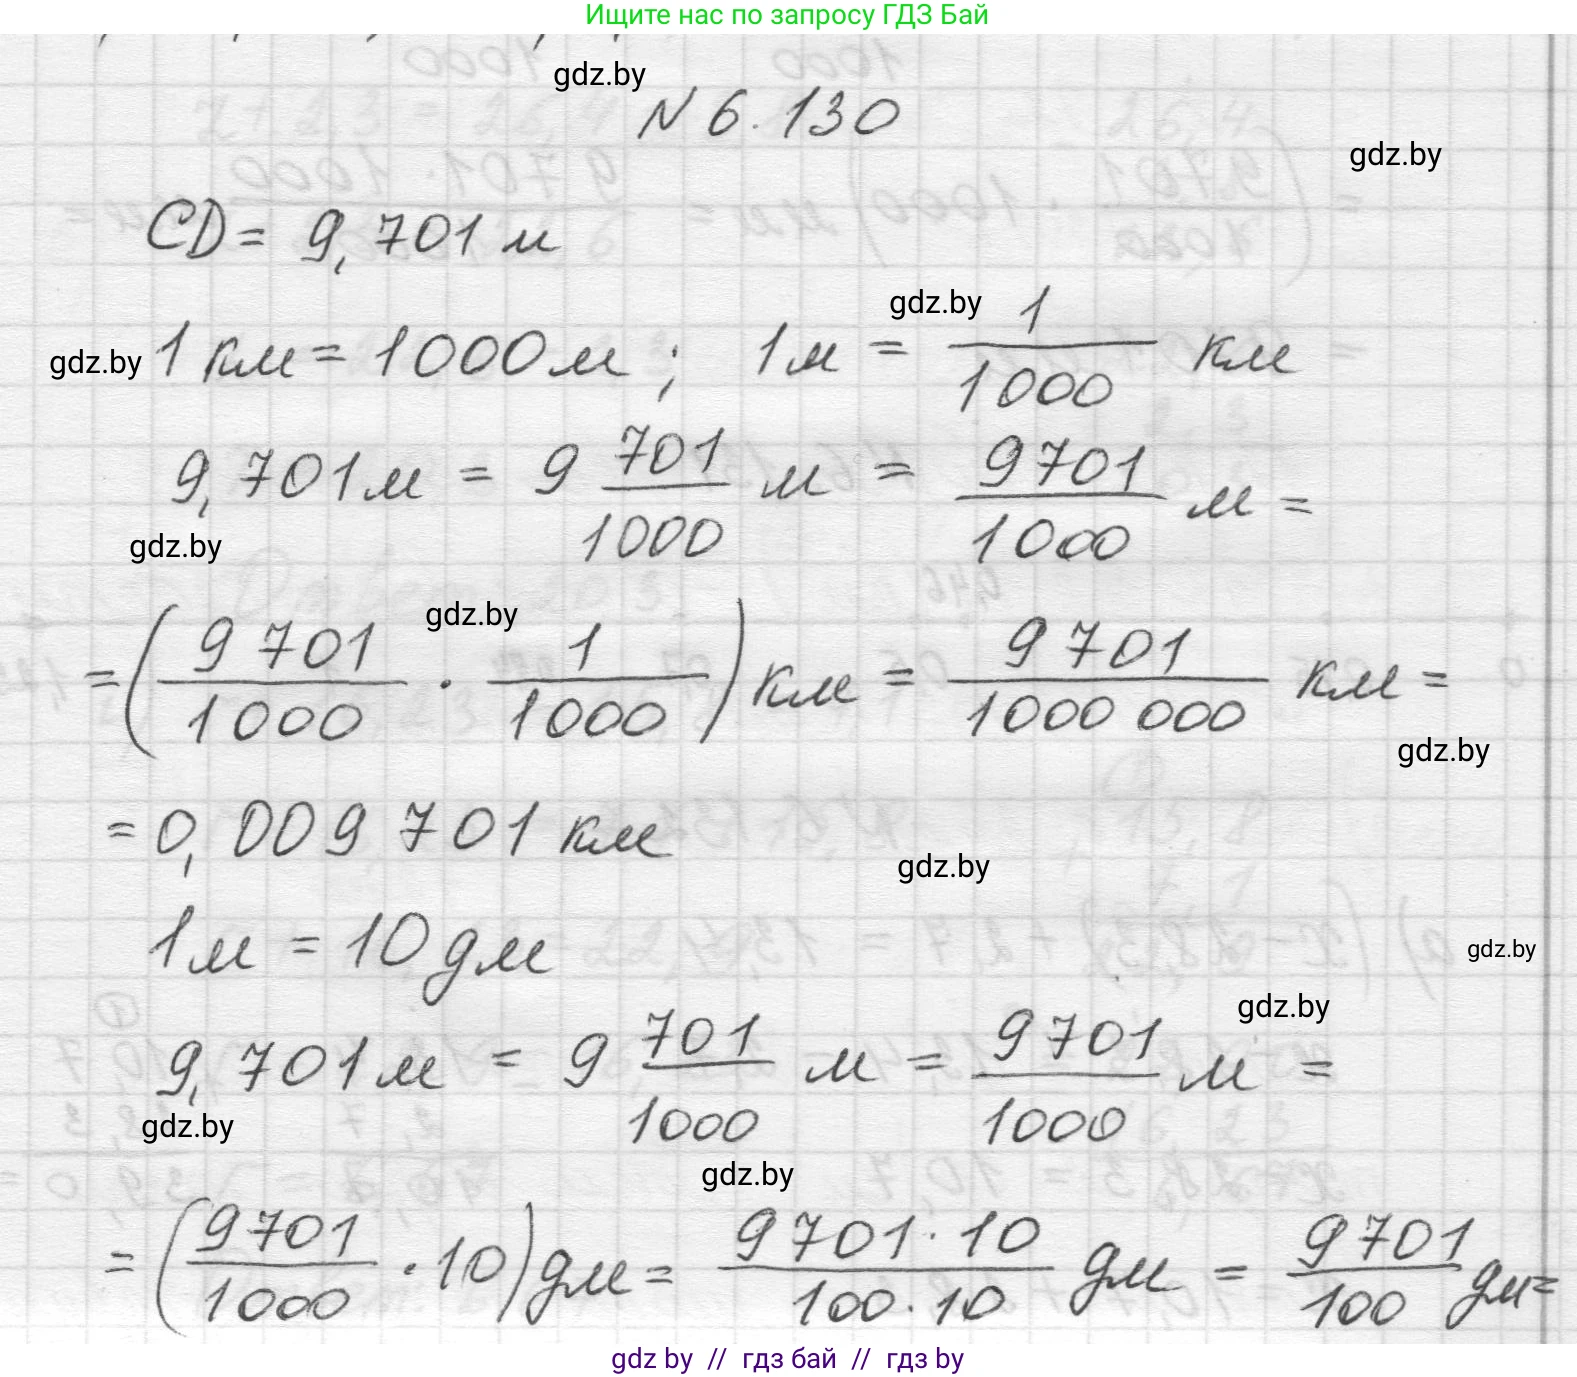 Ищите нас по запросу ГДЗ Бай
gdz.by
N 6.130
gdz.by
CD = 9,701 м
gdz.by
gdz.by
1 км = 1000 м ; 1 м = 1/1000 км
9,701 м = 9 701/1000 м = 9701/1000 м =
gdz.by
gdz.by
= (9 701/1000 · 1/1000) км = 9 701/1000 000 км =
gdz.by
= 0,009 701 км
gdz.by
1 м = 10 дм
gdz.by
gdz.by
9,701 м = 9 701/1000 м = 9 701/1000 м =
gdz.by
gdz.by
= (9701/1000 · 10) дм = 9 701 · 10/100 · 10 дм = 9 701/100 дм =
gdz by // гдз бай // гдз by